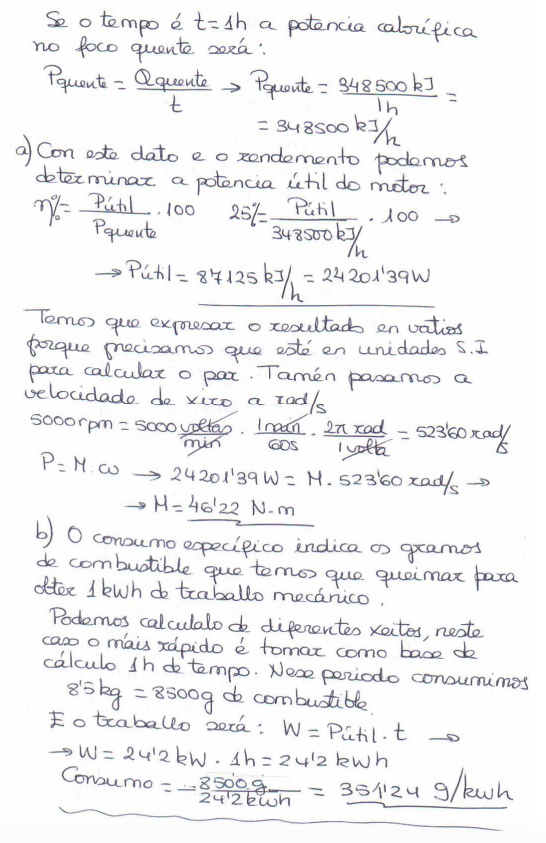 Se o tempo é t=1h a potencia calorífica
no foco quente será:
Pquente = Qquente/t → Pquente = 348500 kJ/1h =
= 348500 kJ/h
a) Con este dato e o rendemento podemos
determinar a potencia útil do motor:
η% = Pútil/Pquente · 100   25% = Pútil/348500 kJ/h · 100 →
→ Pútil = 87125 kJ/h = 24201'39 W
Temos que expresar o resultado en vatios
porque precisamos que esté en unidades S.I
para calcular o par. Tamén pasamos a
velocidade de xiro a rad/s
5000 rpm = 5000 voltas/min · 1 min/60s · 2π rad/1 volta = 523'60 rad/s
P = M.ω → 24201'39 W = M. 523'60 rad/s →
→ M = 46'22 N-m
b) O consumo específico indica os gramos
de combustible que temos que queimar para
obter 1 kWh de traballo mecánico.
Podemos calculalo de diferentes xeitos, neste
caso o máis rápido é tomar como base de
cálculo 1h de tempo. Nese periodo consumimos
8'5 kg = 8500g de combustible.
E o traballo será: W = Pútil. t →
→ W = 24'2 kW. 1h = 24'2 kWh
Consumo = 8500 g/24'2 kWh = 351'24 g/kWh